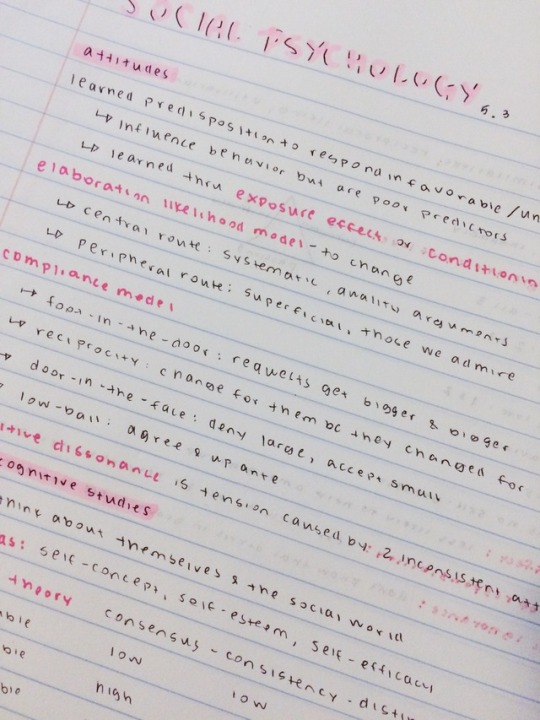 SOCIAL PSYCHOLOGY 5.3
attitudes
learned predisposition to respond in favorable/un
↳ influence behavior but are poor predictors
↳ learned thru exposure effect or conditioning
elaboration likelihood model - to change
↳ central route: systematic, quality arguments
↳ peripheral route: superficial, those we admire
compliance model
↳ foot-in-the-door: requests get bigger & bigger
↳ reciprocity: change for them bc they changed for
door-in-the-face: deny large, accept small
low-ball: agree & up ante
itive dissonance is tension caused by 2 inconsistent att
cognitive studies
think about themselves & the social world
as: self-concept, self-esteem, self-efficacy
theory consensus - consistency - distin
able low
ble high low
ble